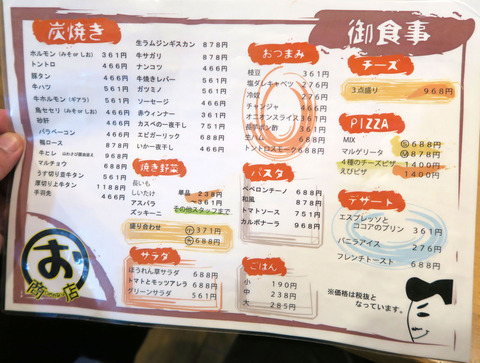 御食事
炭焼き
ホルモン(みそ or しお) 361円
トントロ 466円
豚タン 466円
牛ハツ 561円
牛ホルモン(ギアラ) 561円
馬セセリ(みそ or しお) 466円
砂肝 466円
バラペーコン 466円
鴨ロース 878円
牛ヒレ 968円
マルチョウ 688円
うす切り並牛タン 561円
厚切り上牛タン 1188円
手羽先 466円
生ラムジンギスカン 878円
牛サガリ 878円
ナンコツ 466円
牛焼きレバー 561円
ガツミノ 561円
ソーセージ 466円
赤ウィンナー 361円
カスベの一夜干し 751円
エビガーリック 688円
いか一夜干し 466円
焼き野菜
長いも
しいたけ
アスパラ
ズッキーニ
単品 238円
~361円
その他スタッフまで
盛り合わせ ㊦ 371円
㊅ 688円
サラダ
ほうれん草サラダ 688円
トマトとモッツアレラ 688円
グリーンサラダ 561円
おつまみ
枝豆 361円
塩ダレキャベツ 276円
冷奴 276円
チャンジャ 466円
オニオンスライス 361円
長芋ポン酢 361円
生ハム 688円
トントロスモーク 688円
パスタ
ペペロンチーノ 688円
和風 878円
トマトソース 751円
カルボナーラ 968円
ごはん
小 190円
中 238円
大 285円
チーズ
3点盛り 968円
PIZZA
MIX Ⓢ688円
マルゲリータ Ⓜ878円
4種のチーズピザ 1400円
えびピザ 1400円
デザート
エスプレッソと
ココアのプリン 371円
バニラアイス 276円
フレンチトースト 688円
※価格は税抜と
なっています。
お
店